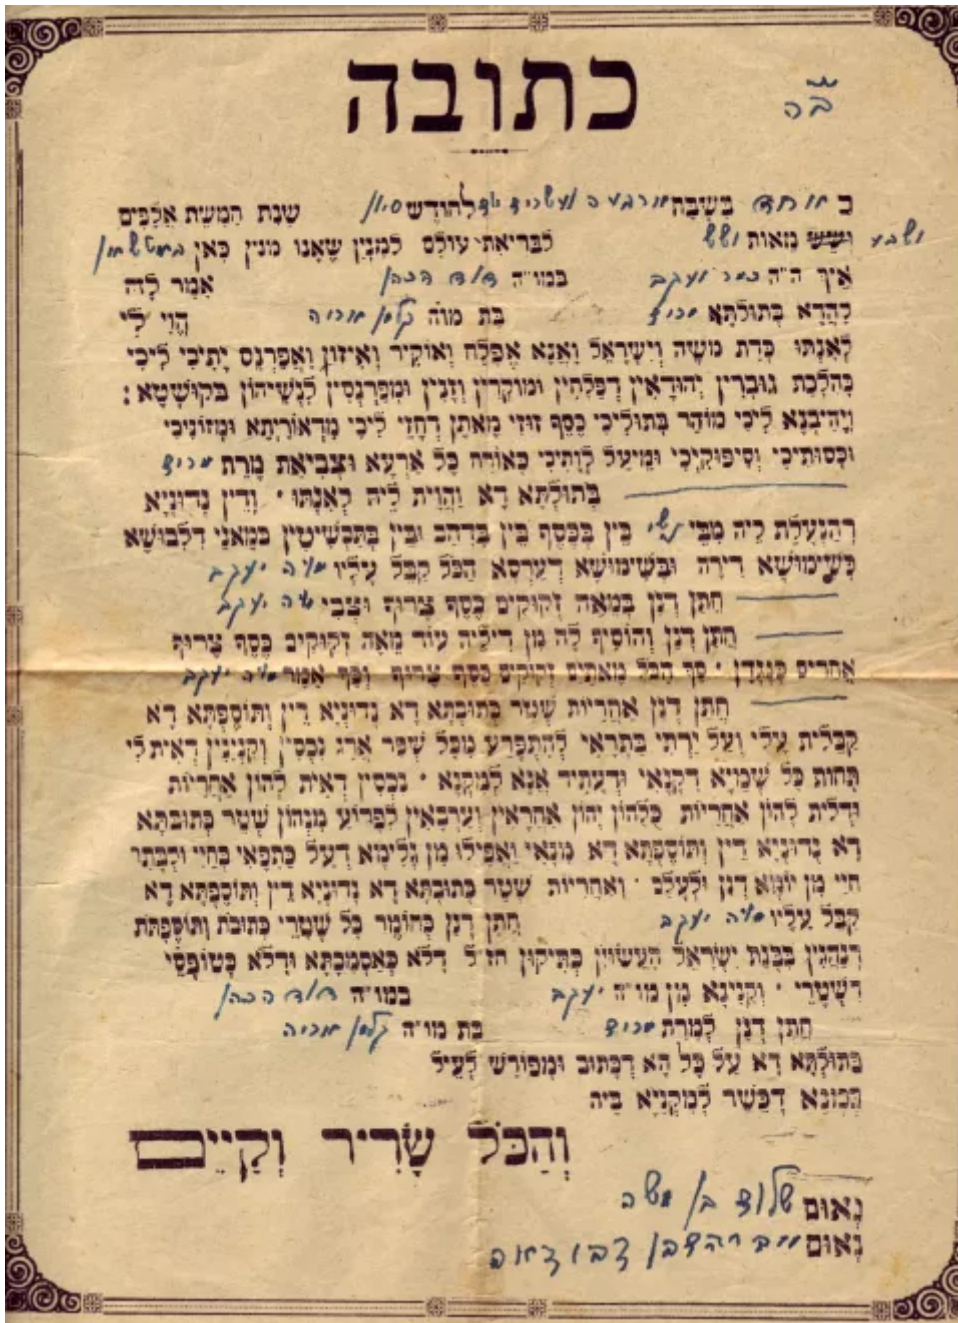 כתובה
ב״ה
ב אחד בשבת ארבעה ועשרים לחודש סיון שנת חמשת אלפים
ושש מאות ושש ושבע לבריאת עולם למנין שאנו מנין כאן
איך ה״ה יעקב במו״ה דוד הכהן אמר לה
להדא בתולתא מרים בת מו״ה קלמן אריה הוי לי
לאנתו כדת משה וישראל ואנא אפלח ואוקיר ואיזון ואפרנס יתיכי ליכי
כהלכת גוברין יהודאין דפלחין ומוקרין וזנין ומפרנסין לנשיהון בקושטא:
ויהיבנא ליכי מוהר בתוליכי כסף זוזי מאתן דחזי ליכי מדאוריתא ומזוניכי
וכסותיכי וסיפוקיכי ומיעל לותיכי כאורח כל ארעא וצביאת מרת מרים
בתולתא דא והוית ליה לאנתו · ודין נדוניא
דהנעלת ליה מבי נשי בין בכסף בין בדהב ובין בתכשיטין במאני דלבושא
בשימושא דירה ובשימושא דערסא הכל קבל עליו מו״ה יעקב
חתן דנן במאה זקוקים כסף צרוף וצבי מו״ה יעקב
חתן דנן והוסיף לה מן דיליה עוד מאה זקוקים כסף צרוף
אחרים כנגדן · סך הכל מאתים זקוקים כסף צרוף וכך אמר מו״ה יעקב
חתן דנן אחריות שטר כתובתא דא נדוניא דין ותוספתא דא
קבלית עלי ועל ירתי בתראי להתפרע מכל שפר ארג נכסין וקנינין דאית לי
תחות כל שמיא דקנאי ודעתיד אנא למקנא · נכסין דאית להון אחריות
ודלית להון אחריות כלהון יהון אחראין וערבאין לפרוע מנהון שטר כתובתא
דא נדוניא דין ותוספתא דא מנאי ואפילו מן גלימא דעל כתפאי בחיי ולבתר
חיי מן יומא דנן ולעלם · ואחריות שטר כתובתא דא נדוניא דין ותוספתא דא
קבל עליו מו״ה יעקב חתן דנן כחומר כל שטרי כתובת ותוספתת
דנהגין בבנת ישראל העשוין כתיקון חז״ל דלא כאסמכתא ודלא כטופסי
דשטרי · וקנינא מן מו״ה יעקב במו״ה דוד הכהן
חתן דנן למרת מרים בת מו״ה קלמן אריה
בתולתא דא על כל הא דכתוב ומפורש לעיל
במנא דכשר למקניא ביה
והכל שריר וקיים
נאום בן משה
נאום